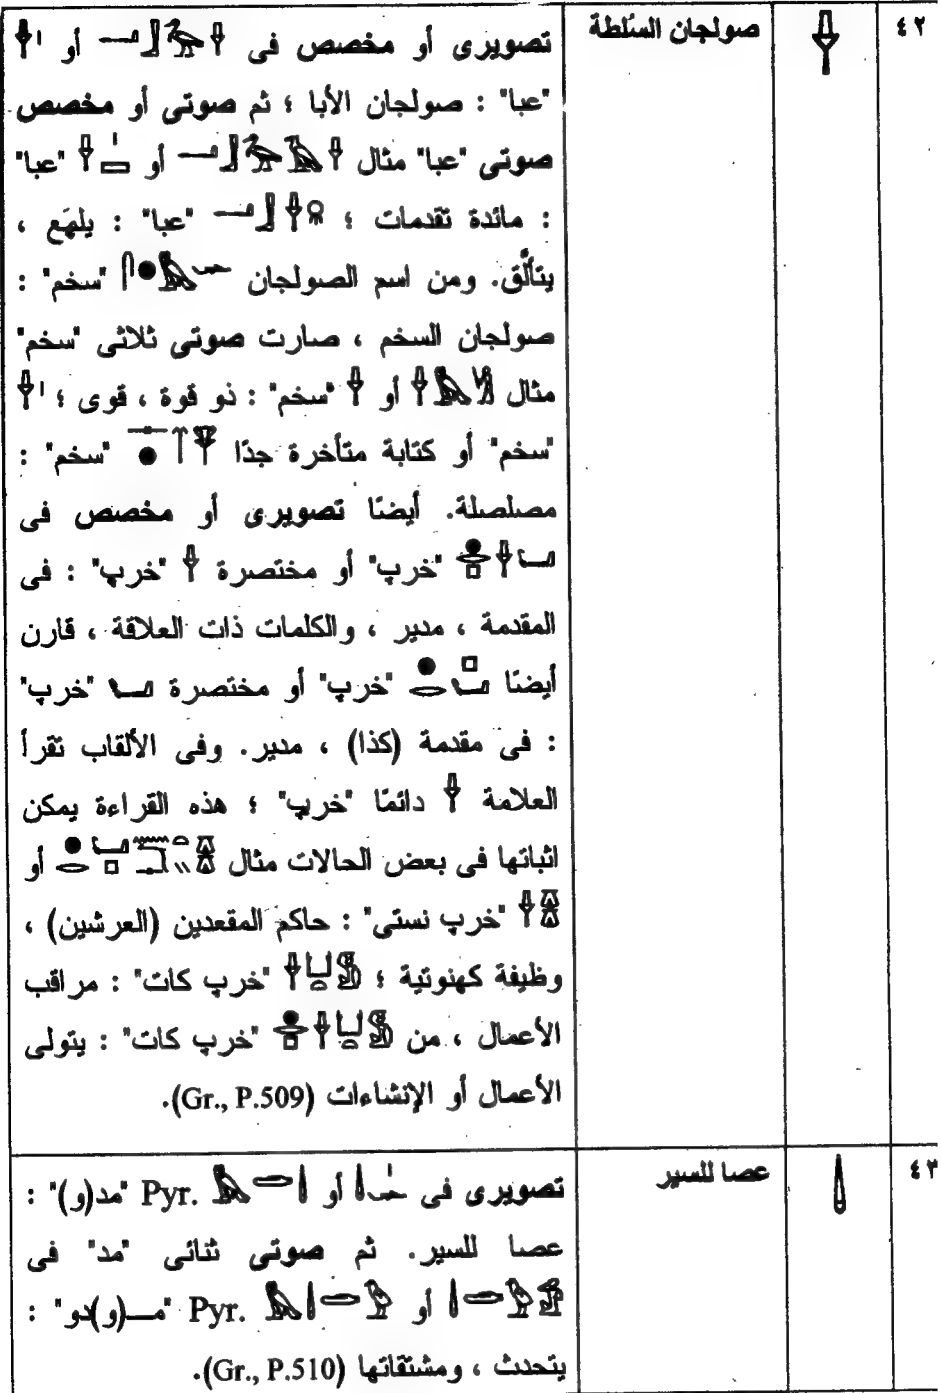 ٤٢ 𓌂 صولجان السلطة تصويرى أو مخصص فى أو 𓌂𓏤
"عبا" : صولجان الأبا ؛ ثم صوتى أو مخصص
صوتى "عبا" مثال أو "عبا"
: مائدة تقدمات ؛ "عبا" : يلهَع ،
يتألَّق. ومن اسم الصولجان "سخم" :
صولجان السخم ، صارت صوتى ثلاثى "سخم"
مثال أو 𓌂 "سخم" : ذو قوة ، قوى ؛ 𓌂𓏤
"سخم" أو كتابة متأخرة جدًا "سخم" :
مصلصلة. أيضًا تصويرى أو مخصص فى
"خرپ" أو مختصرة 𓌂 "خرپ" : فى
المقدمة ، مدير ، والكلمات ذات العلاقة ، قارن
أيضًا "خرپ" أو مختصرة "خرپ"
: فى مقدمة (كذا) ، مدير. وفى الألقاب تقرأ
العلامة 𓌂 دائمًا "خرپ" ؛ هذه القراءة يمكن
اثباتها فى بعض الحالات مثال أو
"خرپ نستى" : حاكم المقعدين (العرشين) ،
وظيفة كهنوتية ؛ "خرپ كات" : مراقب
الأعمال ، من "خرپ كات" : يتولى
الأعمال أو الإنشاءات (Gr., P.509).
٤٣ 𓌃 عصا للسير تصويرى فى أو Pyr. "مد(و)" :
عصا للسير. ثم صوتى ثنائى "مد" فى
أو Pyr. "مـــ(و)دو" :
يتحدث ، ومشتقاتها (Gr., P.510).